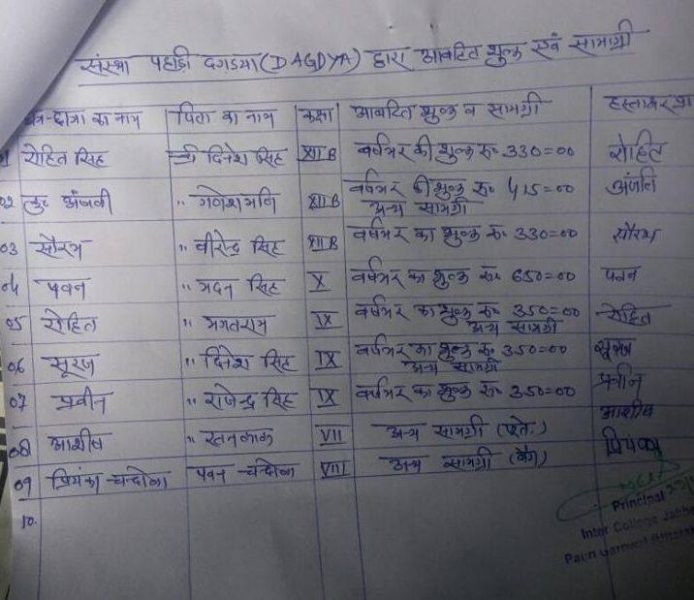 संस्था पहाड़ी दगड्या (DAGDYA) द्वारा आवंटित शुल्क एवं सामाग्री
छात्र-छात्रा का नाम पिता का नाम कक्षा आवंटित शुल्क व सामग्री हस्ताक्षर
रोहित सिंह श्री दिनेश सिंह XII B वर्षभर की शुल्क रू. 330=00 रोहित
02 कु० अंजली " गणेशमणि XII B वर्षभर की शुल्क रू. 415=00 अंजलि
अन्य सामग्री
03 सौरभ " वीरेन्द्र सिंह XII B वर्षभर का शुल्क रू. 330=00 सौरभ
04 पवन " मदन सिंह X वर्षभर का शुल्क रू. 650=00 पवन
05 रोहित " भगतराम IX वर्षभर का शुल्क रू. 350=00 रोहित
अन्य सामग्री
06 सूरज " दिनेश सिंह IX वर्षभर का शुल्क रू. 350=00 सूरज
अन्य सामग्री
07 प्रवीन " राजेन्द्र सिंह IX वर्षभर का शुल्क रू. 350=00 प्रवीन
08 आशीष " रतनलाल VII अन्य सामग्री आशीष
09 प्रियंका चन्दोला पवन चन्दोला VIII अन्य सामग्री (बैग) प्रियंका
10.
Principal
Inter College